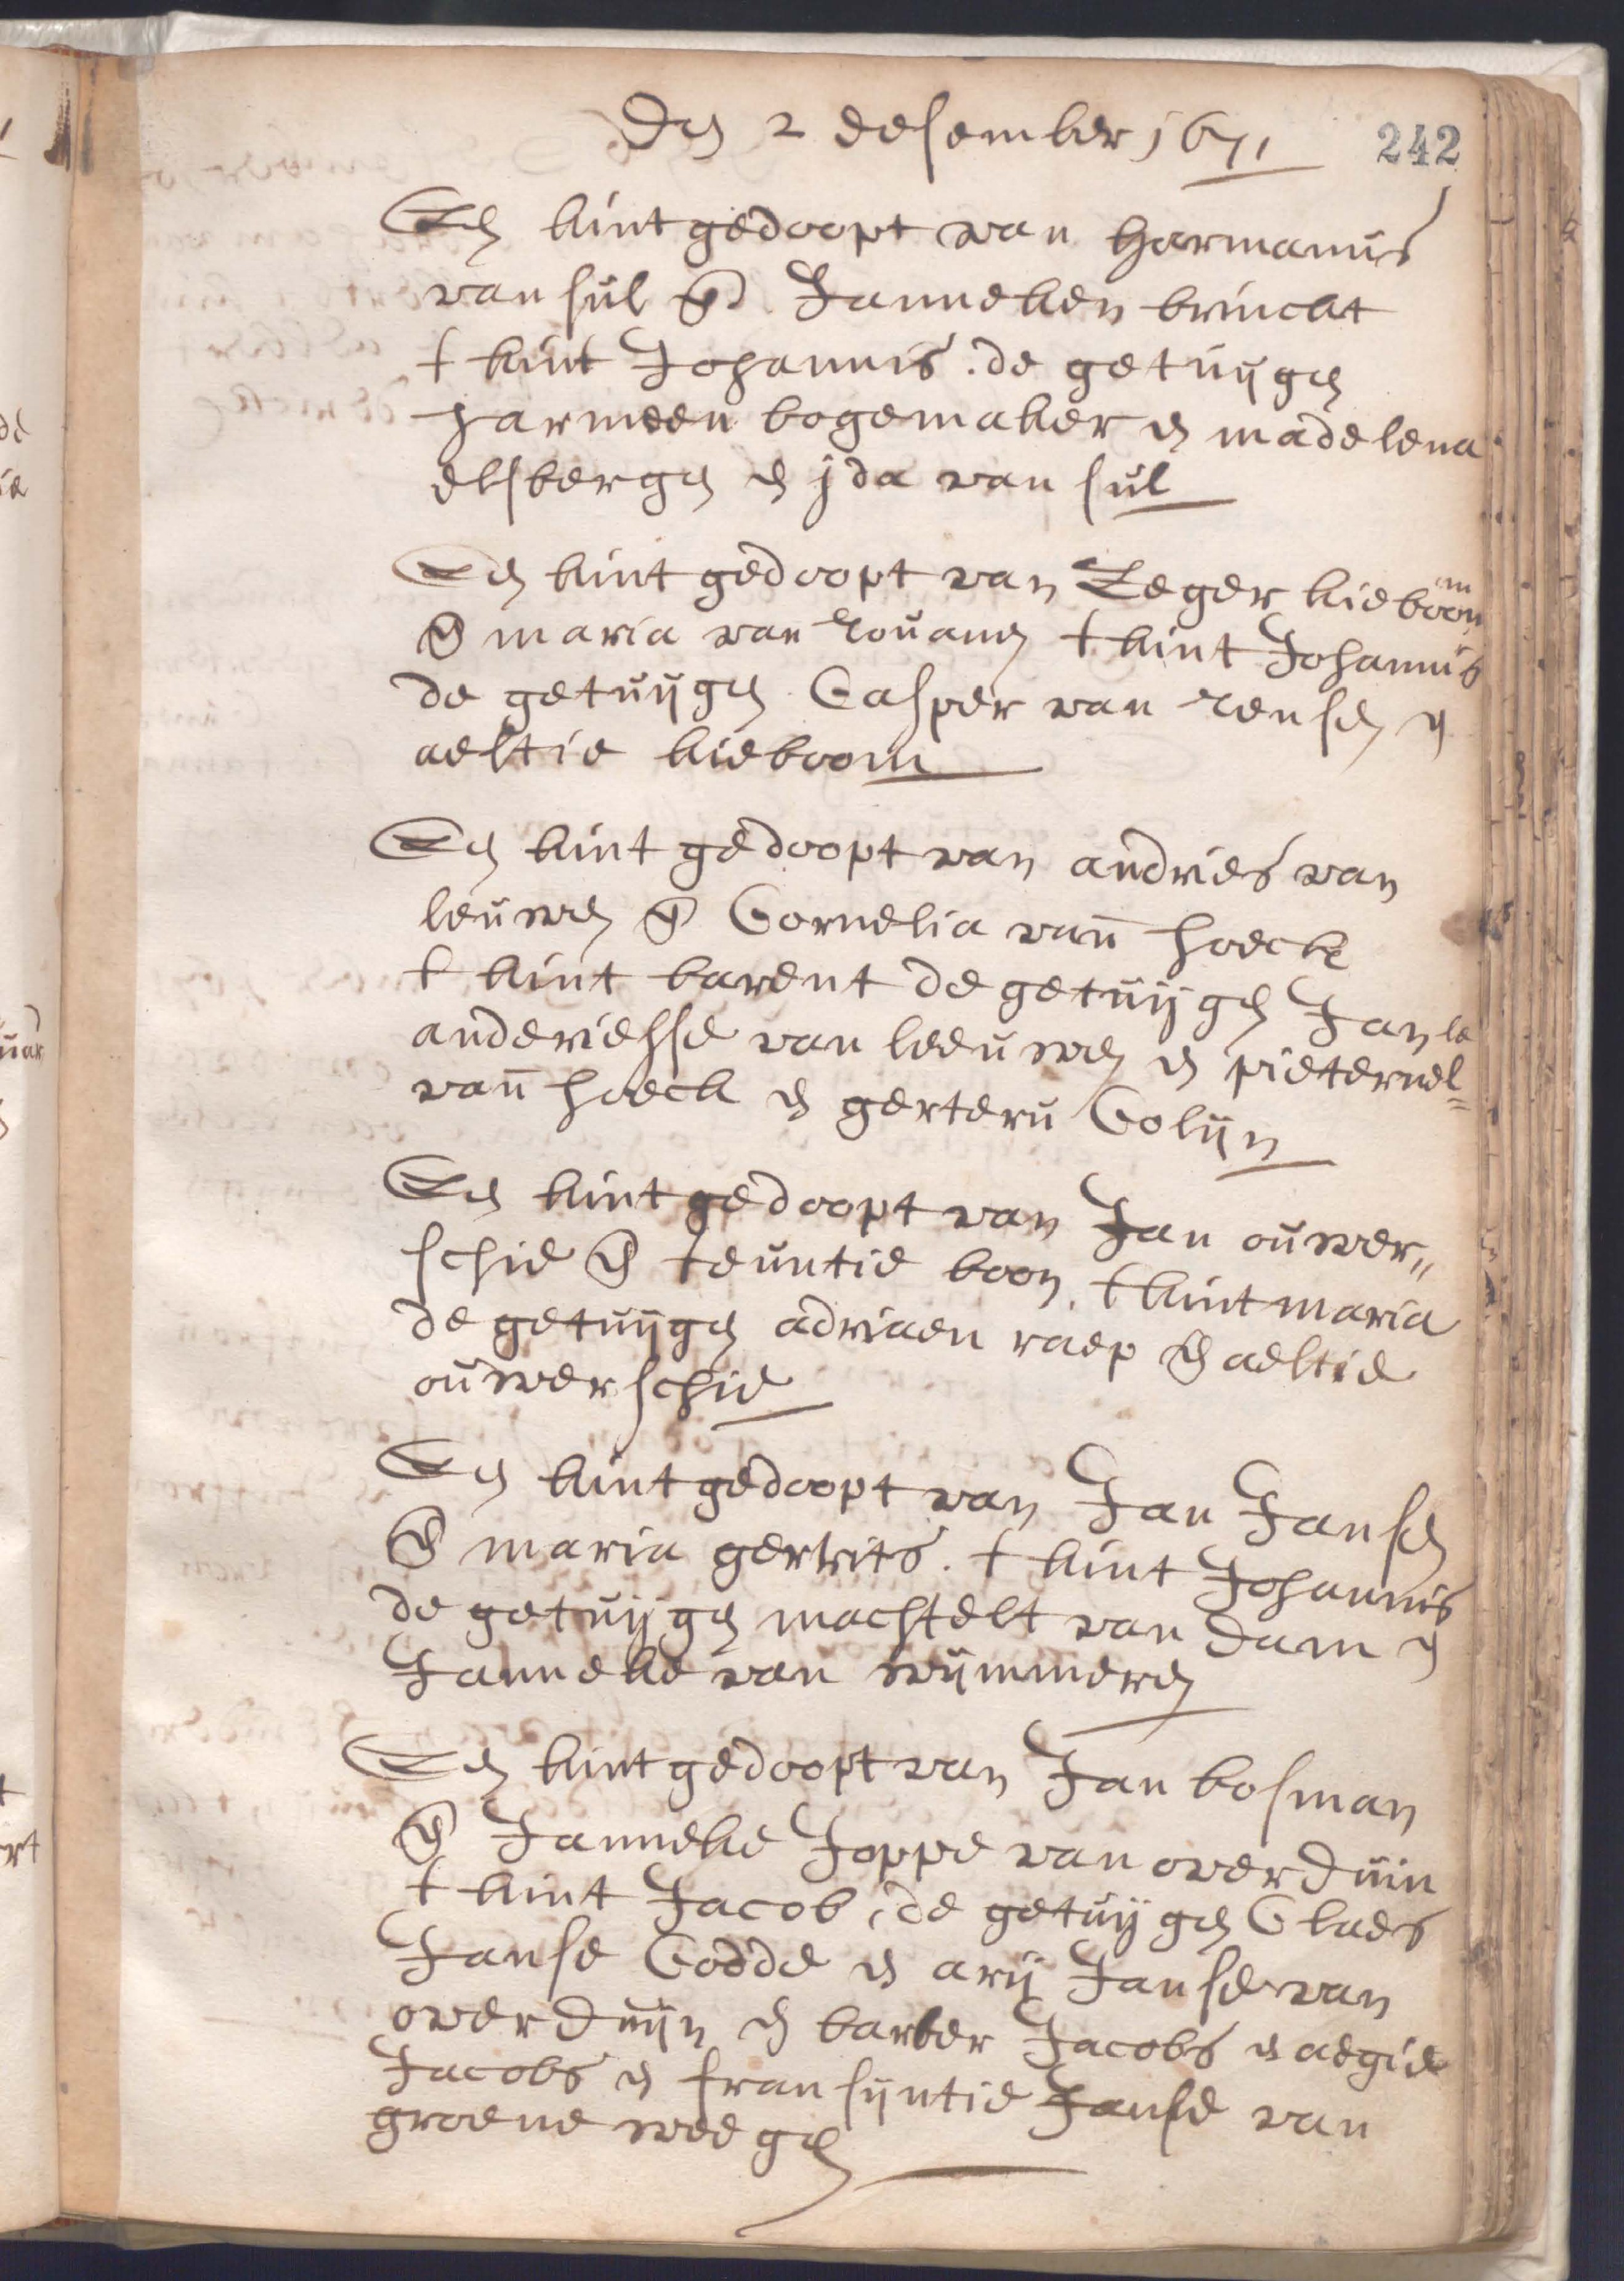 Den 2 desember 1671
242
Een kint gedoopt van Harmanus
van sul End Janneken brinckt
t kint Johannis. de getuijgen
harmeen bogemaker en madelena
elsbergen en jda van sul
Een kint gedoopt van Zeger kieboom
En maria van Louanen t kint Johannis
de getuijgen Casper van Rensen en
aeltie kieboom
Een kint gedoopt van andries van
leuwen En Cornelia vann hoeck
t kint barent de getuijgen Jan
anderiesse van leeuwen en pieternel=
la
vann hoeck en gerteru Colijn
Een kint gedoopt van Jan ouwer"
schie En teuntie boon. t kint maria
de getuijgen adriaen raep En aeltie
ouwerschie
Een kint gedoopt van Jan Jansen
En maria gerrits. t kint Johannis
de getuijgen machtelt van Dam en
Janneke van wijmmeren
Een kint gedoopt van Jan bosman
En Janneke Joppe van overduin
t kint Jacob, de getuijgen Claes
Janse Codde en arij Janse van
overduijn en barber Jacobs en aegie
Jacobs en fransijntie Janse van
groene weegen